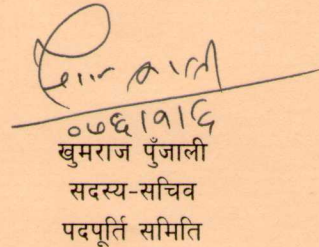 ०७६।१।६
खुमराज पुँजाली
सदस्य-सचिव
पदपूर्ति समिति